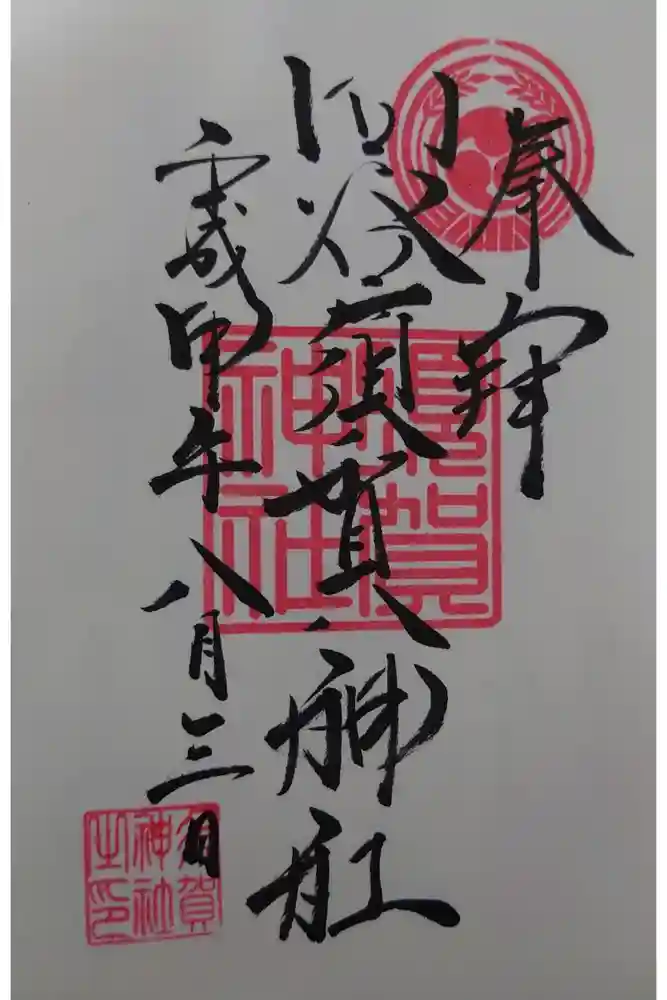 奉拝
四谷須賀神社
歳甲午八月三日
須賀
神社
須賀
神社
之印